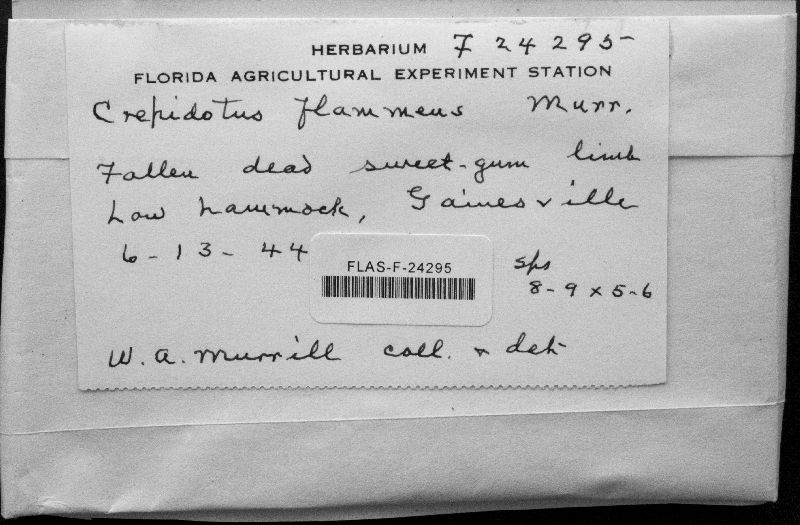 HERBARIUM F 24295
FLORIDA AGRICULTURAL EXPERIMENT STATION
Crepidotus flammeus Murr.
Fallen dead sweet-gum limb
Low hammock, Gainesville
6-13-44
FLAS-F-24295
sps
8-9 x 5-6
W. A. Murrill coll. & det